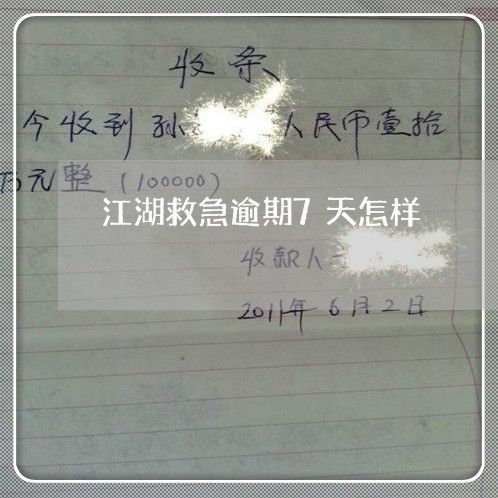 收条
今收到孙人民币壹拾
万元整(100000)
江湖救急逾期7天怎样
收款人
2011年6月2日